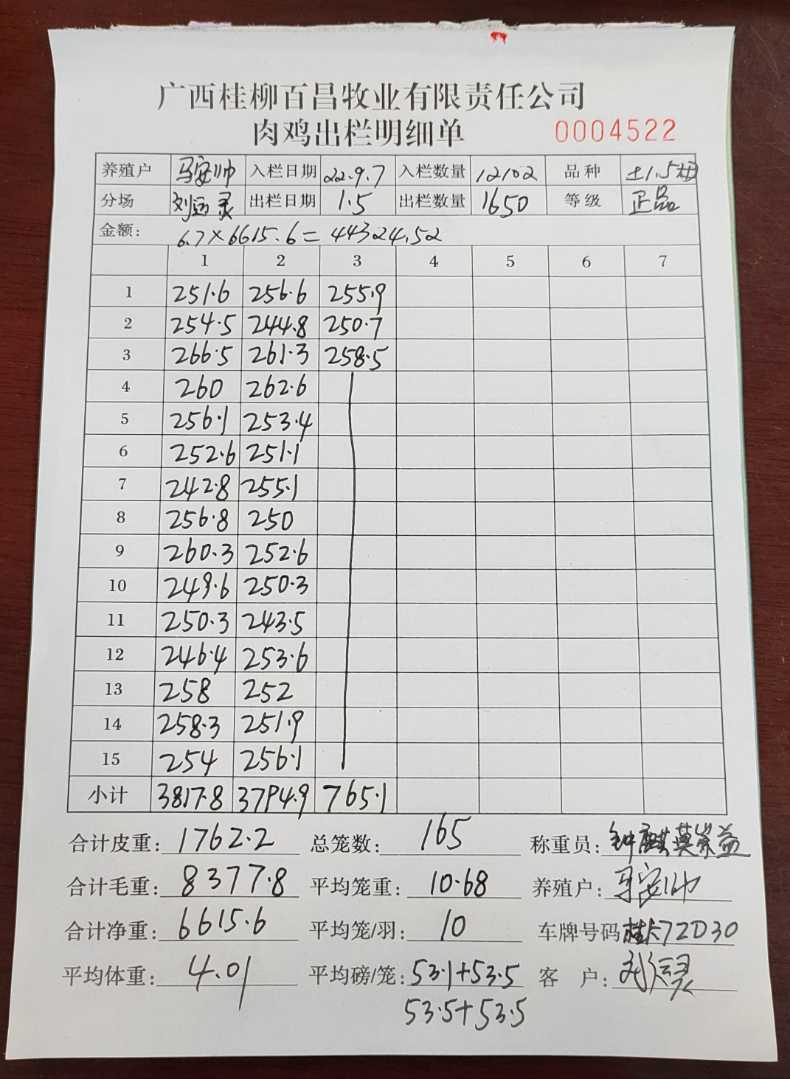 广西桂柳百昌牧业有限责任公司
肉鸡出栏明细单 0004522
养殖户 马安帅 入栏日期 22.9.7 入栏数量 12102 品种 土1.5母
分场 出栏日期 1.5 出栏数量 1650 等级 正品
金额: 6.7×6615.6=44324.52
1 2 3 4 5 6 7
1 251.6 256.6 255.9
2 254.5 244.8 250.7
3 266.5 261.3 258.5
4 260 262.6
5 256.1 253.4
6 252.6 251.1
7 242.8 255.1
8 256.8 250
9 260.3 252.6
10 249.6 250.3
11 250.3 243.5
12 246.4 253.6
13 258 252
14 258.3 251.9
15 254 256.1
小计 3817.8 3794.9 765.1
合计皮重: 1762.2 总笼数: 165 称重员: 钟麒 莫崇益
合计毛重: 8377.8 平均笼重: 10.68 养殖户: 马安帅
合计净重: 6615.6 平均笼/羽: 10 车牌号码 桂K72D30
平均体重: 4.01 平均磅/笼: 53.1+53.5 客 户:
53.5+53.5